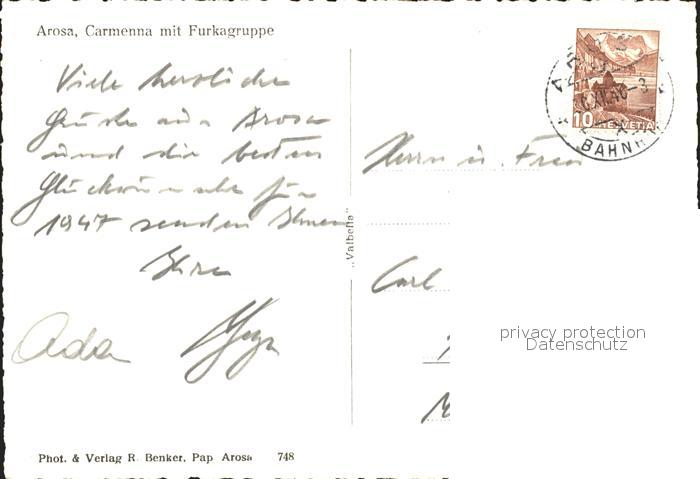 Arosa, Carmenna mit Furkagruppe
Viele herzliche
Grüsse aus Arosa
und die besten
Glückwünsche für
1947 senden Ihnen
Ihre
Ada
Phot. & Verlag R. Benker, Pap. Arosa 748
„Valbella"
10 HELVETIA
BAHNH
Herrn u. Frau
Carl
privacy protection
Datenschutz